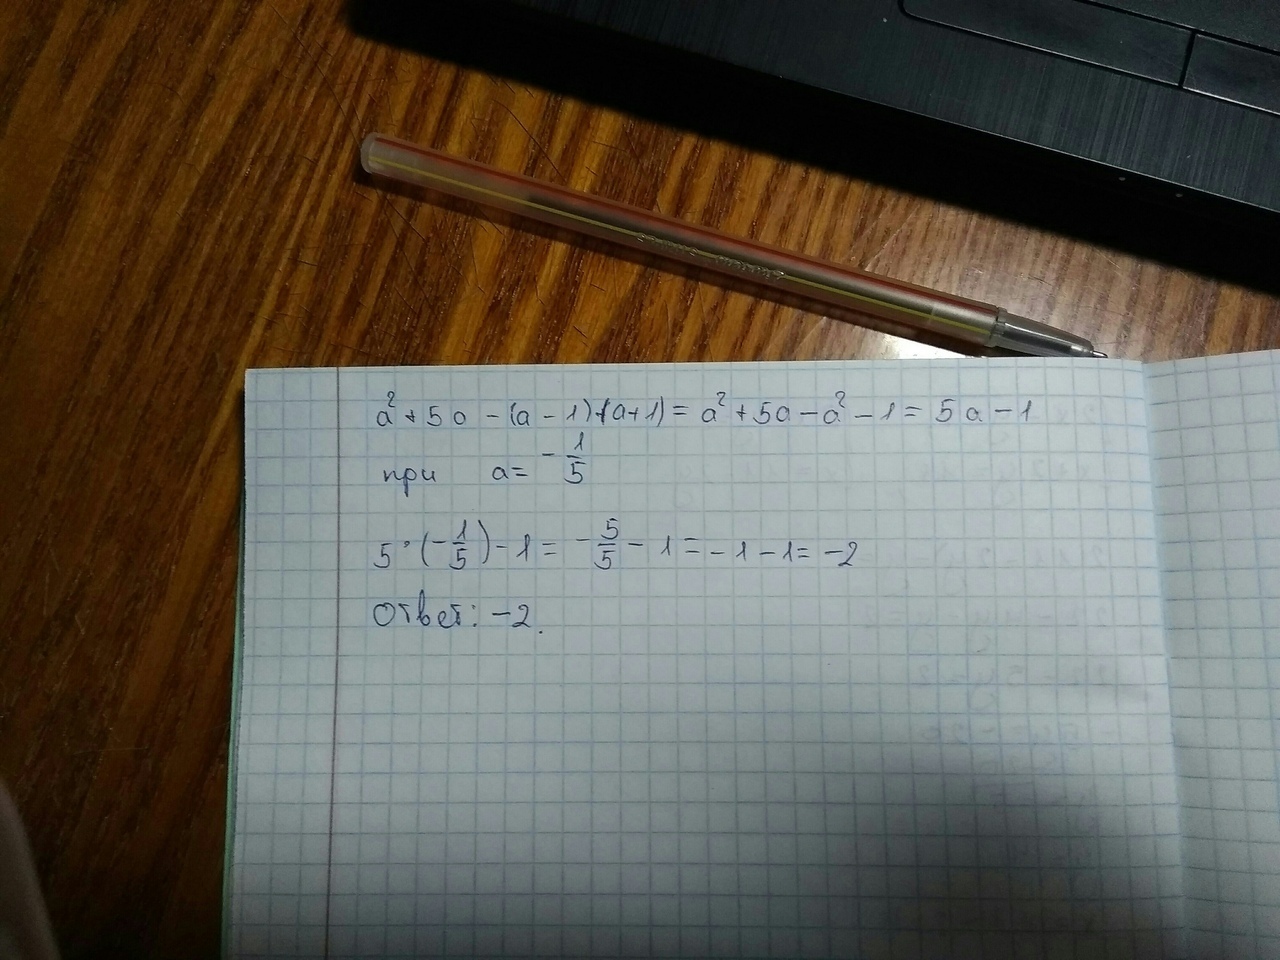 a² + 5a - (a - 1)·(a+1) = a² + 5a - a² - 1 = 5a - 1
при a = -1/5
5·(-1/5) - 1 = -5/5 - 1 = -1 - 1 = -2
Ответ: -2.